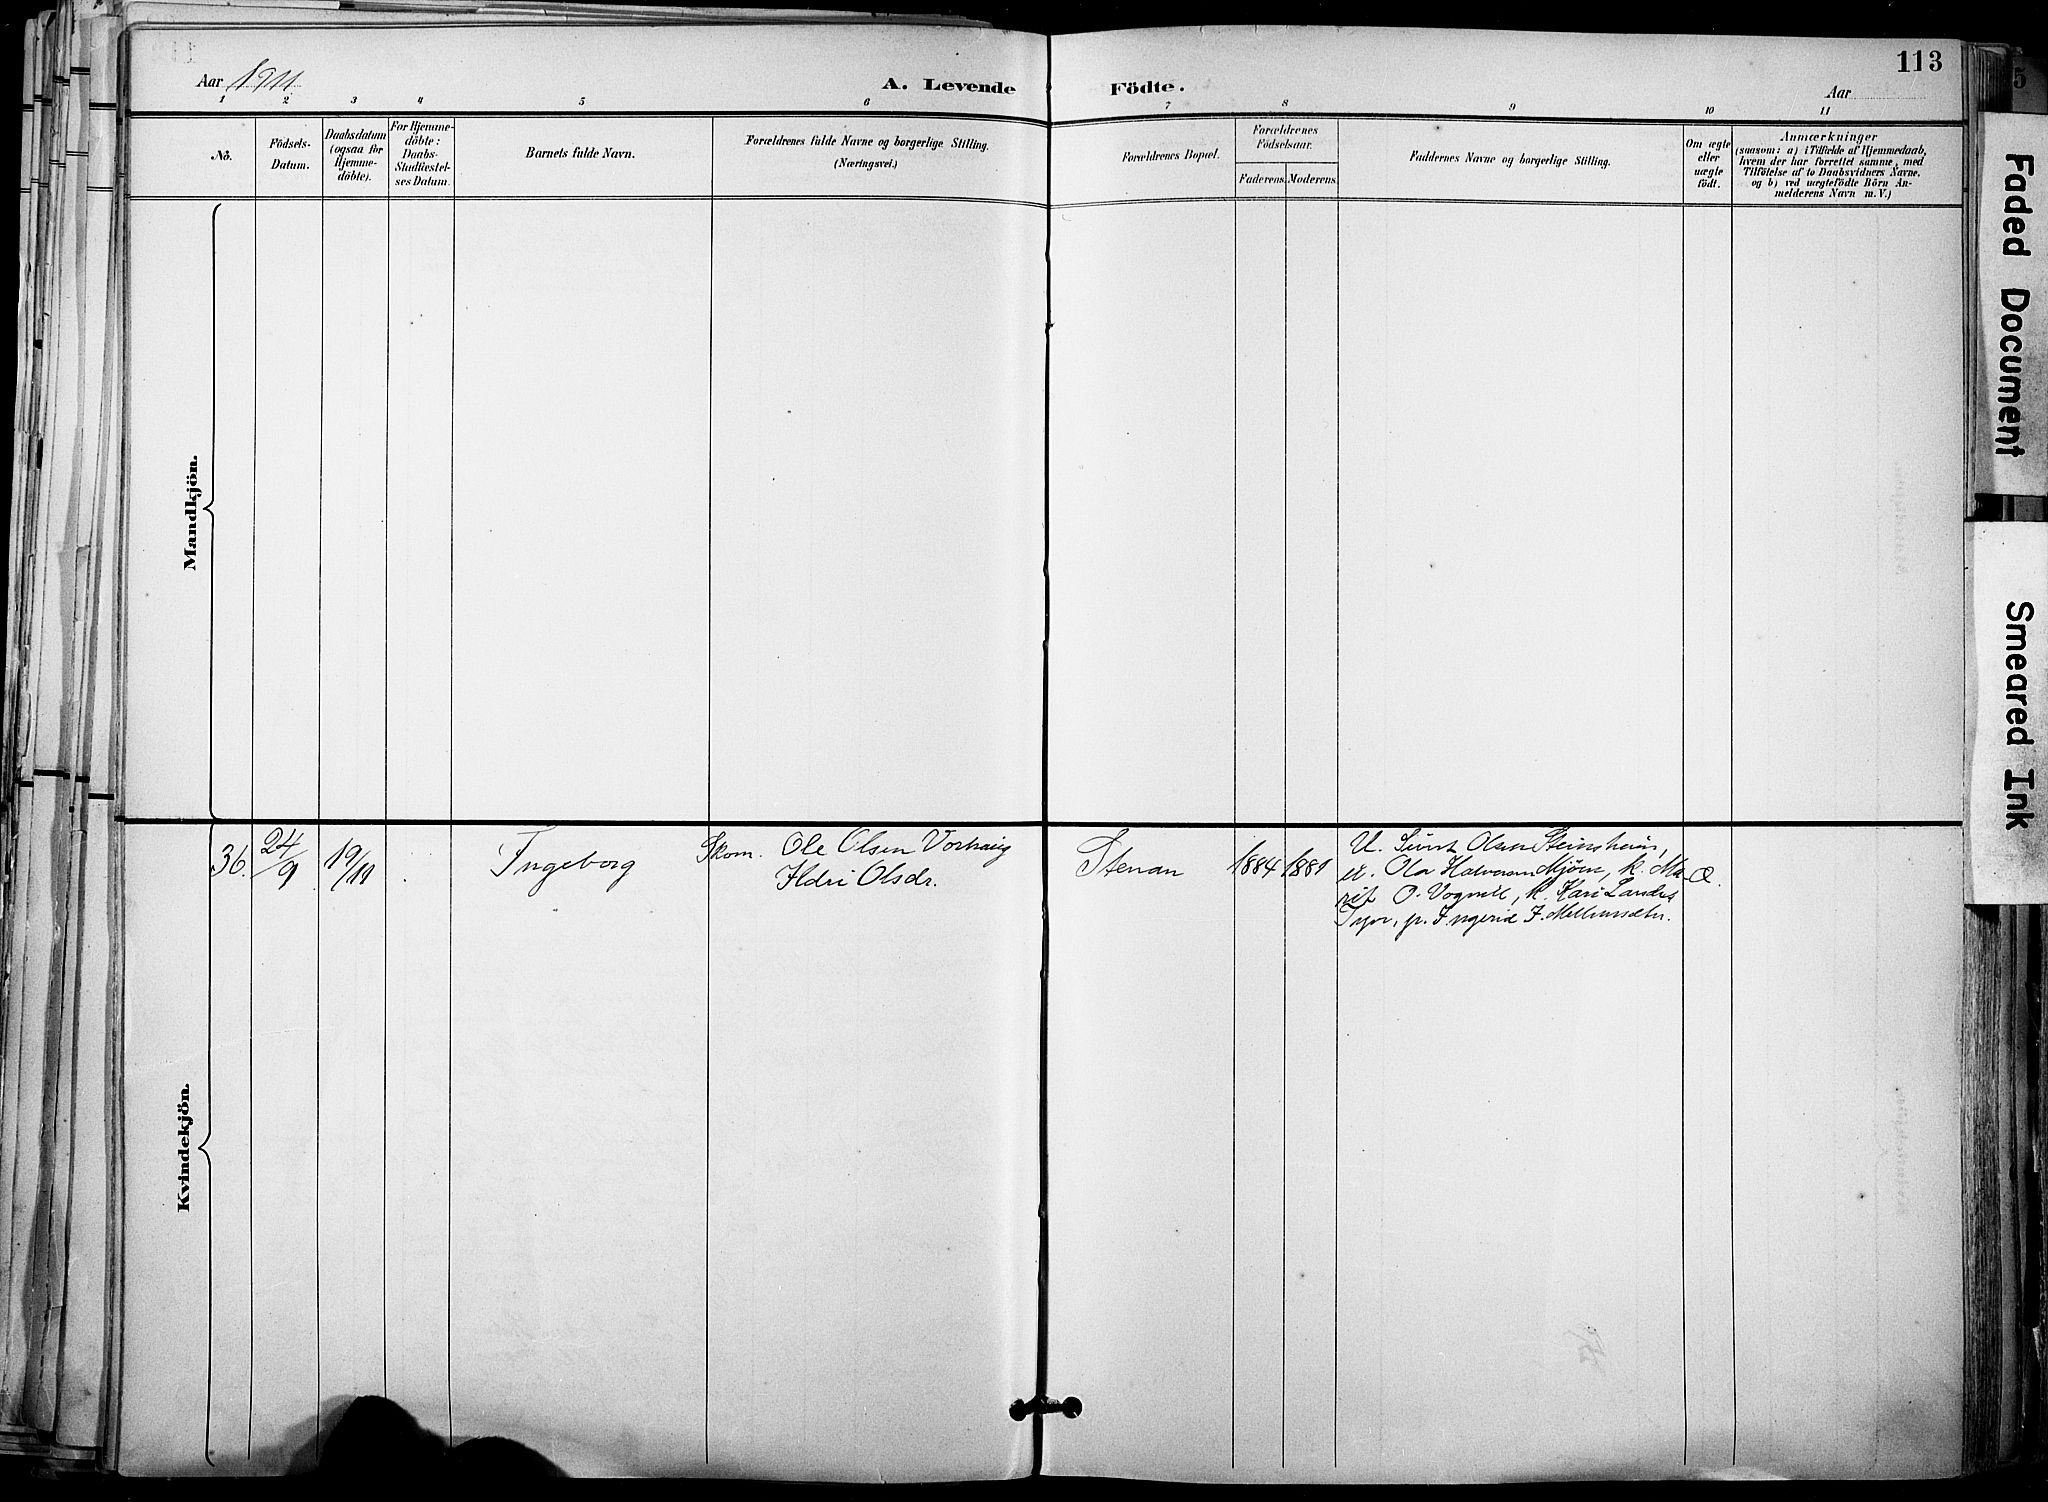 Aar 1911
A. Levende Födte.
113
Aar
1 2 3 4 5 6 7 8 9 10 11
No.
Födsels-
Datum.
Daabsdatum
(ogsaa for
Hjemme-
döbte).
For Hjemme-
döbte:
Daabs-
Stadfæstel-
ses Datum.
Barnets fulde Navn.
Forældrenes fulde Navne og borgerlige Stilling.
(Næringsvei.)
Forældrenes Bopæl.
Forældrenes
Födselsaar.
Faderens. Moderens.
Faddernes Navne og borgerlige Stilling.
Om ægte
eller
uægte
födt.
Anmærkninger
(saasom: a) i Tilfælde af Hjemmedaab,
hvem der har forrettet samme, med
Tilföielse af to Daabsvidners Navne,
og b) ved uægtefödte Börn An-
melderens Navn m. V.)
Mandkjön.
Kvindekjön.
36. 24/9 19/11 Ingeborg
Skom. Ole Olsen Vorhaug
Ildri Olsdr.
Stenan 1884 1881
U. Sivert Olsen Steinsheim,
u. Ola Halvorsen Mjøen, k. Ma-
rit O. Vognill, k. Kari Landrs
p. Ingerid J. Mellemsæter.
Æ.
Faded Document
Smeared Ink
5